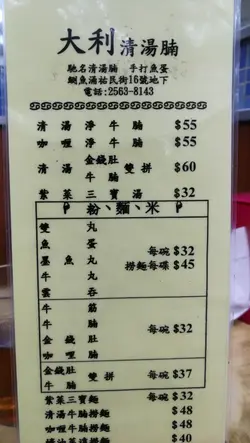 大利清湯腩
馳名清湯腩 手打魚蛋
鰂魚涌祐民街16號地下
電話:2563-8143
清湯淨牛腩 $55
咖喱淨牛腩 $55
清湯 金錢肚 牛腩 雙拼 $60
紫菜三寶湯 $32
粉、麵、米
雙丸
魚蛋
墨魚丸
牛丸
雲吞
每碗 $32
撈麵每碟 $45
牛筋
牛腩
金錢肚
咖喱腩
每碗 $32
金錢肚 牛腩 雙拼 每碗 $37
紫菜三寶麵 每碗 $32
清湯牛腩撈麵 $48
咖喱牛腩撈麵 $48
撈麵 $40